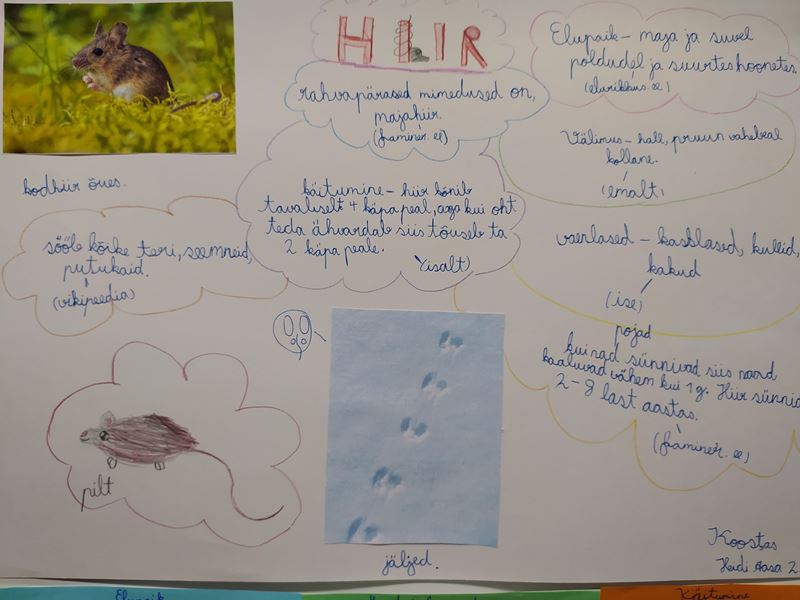 HIIR
rahvapärased nimedused on,
majahiir.
(loaminer.ee)
Elupaik – maja ja suvel
põldudel ja suurtes hoonetes.
(elurikkus.ee)
Välimus – hall, pruun vahepeal
kollane.
(emalt)
kodhiir õues.
käitumine – hiir kõnib
tavaliselt 4 käpa peal, aga kui oht
teda ähvardab siis tõuseb ta
2 käpa peale.
(isalt)
sööb kõike teri, seemneid,
putukaid.
(vikipeedia)
vaenlased – kaslased, kullid,
kakud
(ise)
pojad
kui nad sünnivad siis nad
kaaluvad vähem kui 1 g. Hiir
2-8 last aastas.
pilt
jäljed.
Koostas
Heidi
Elupaik
Käitumine